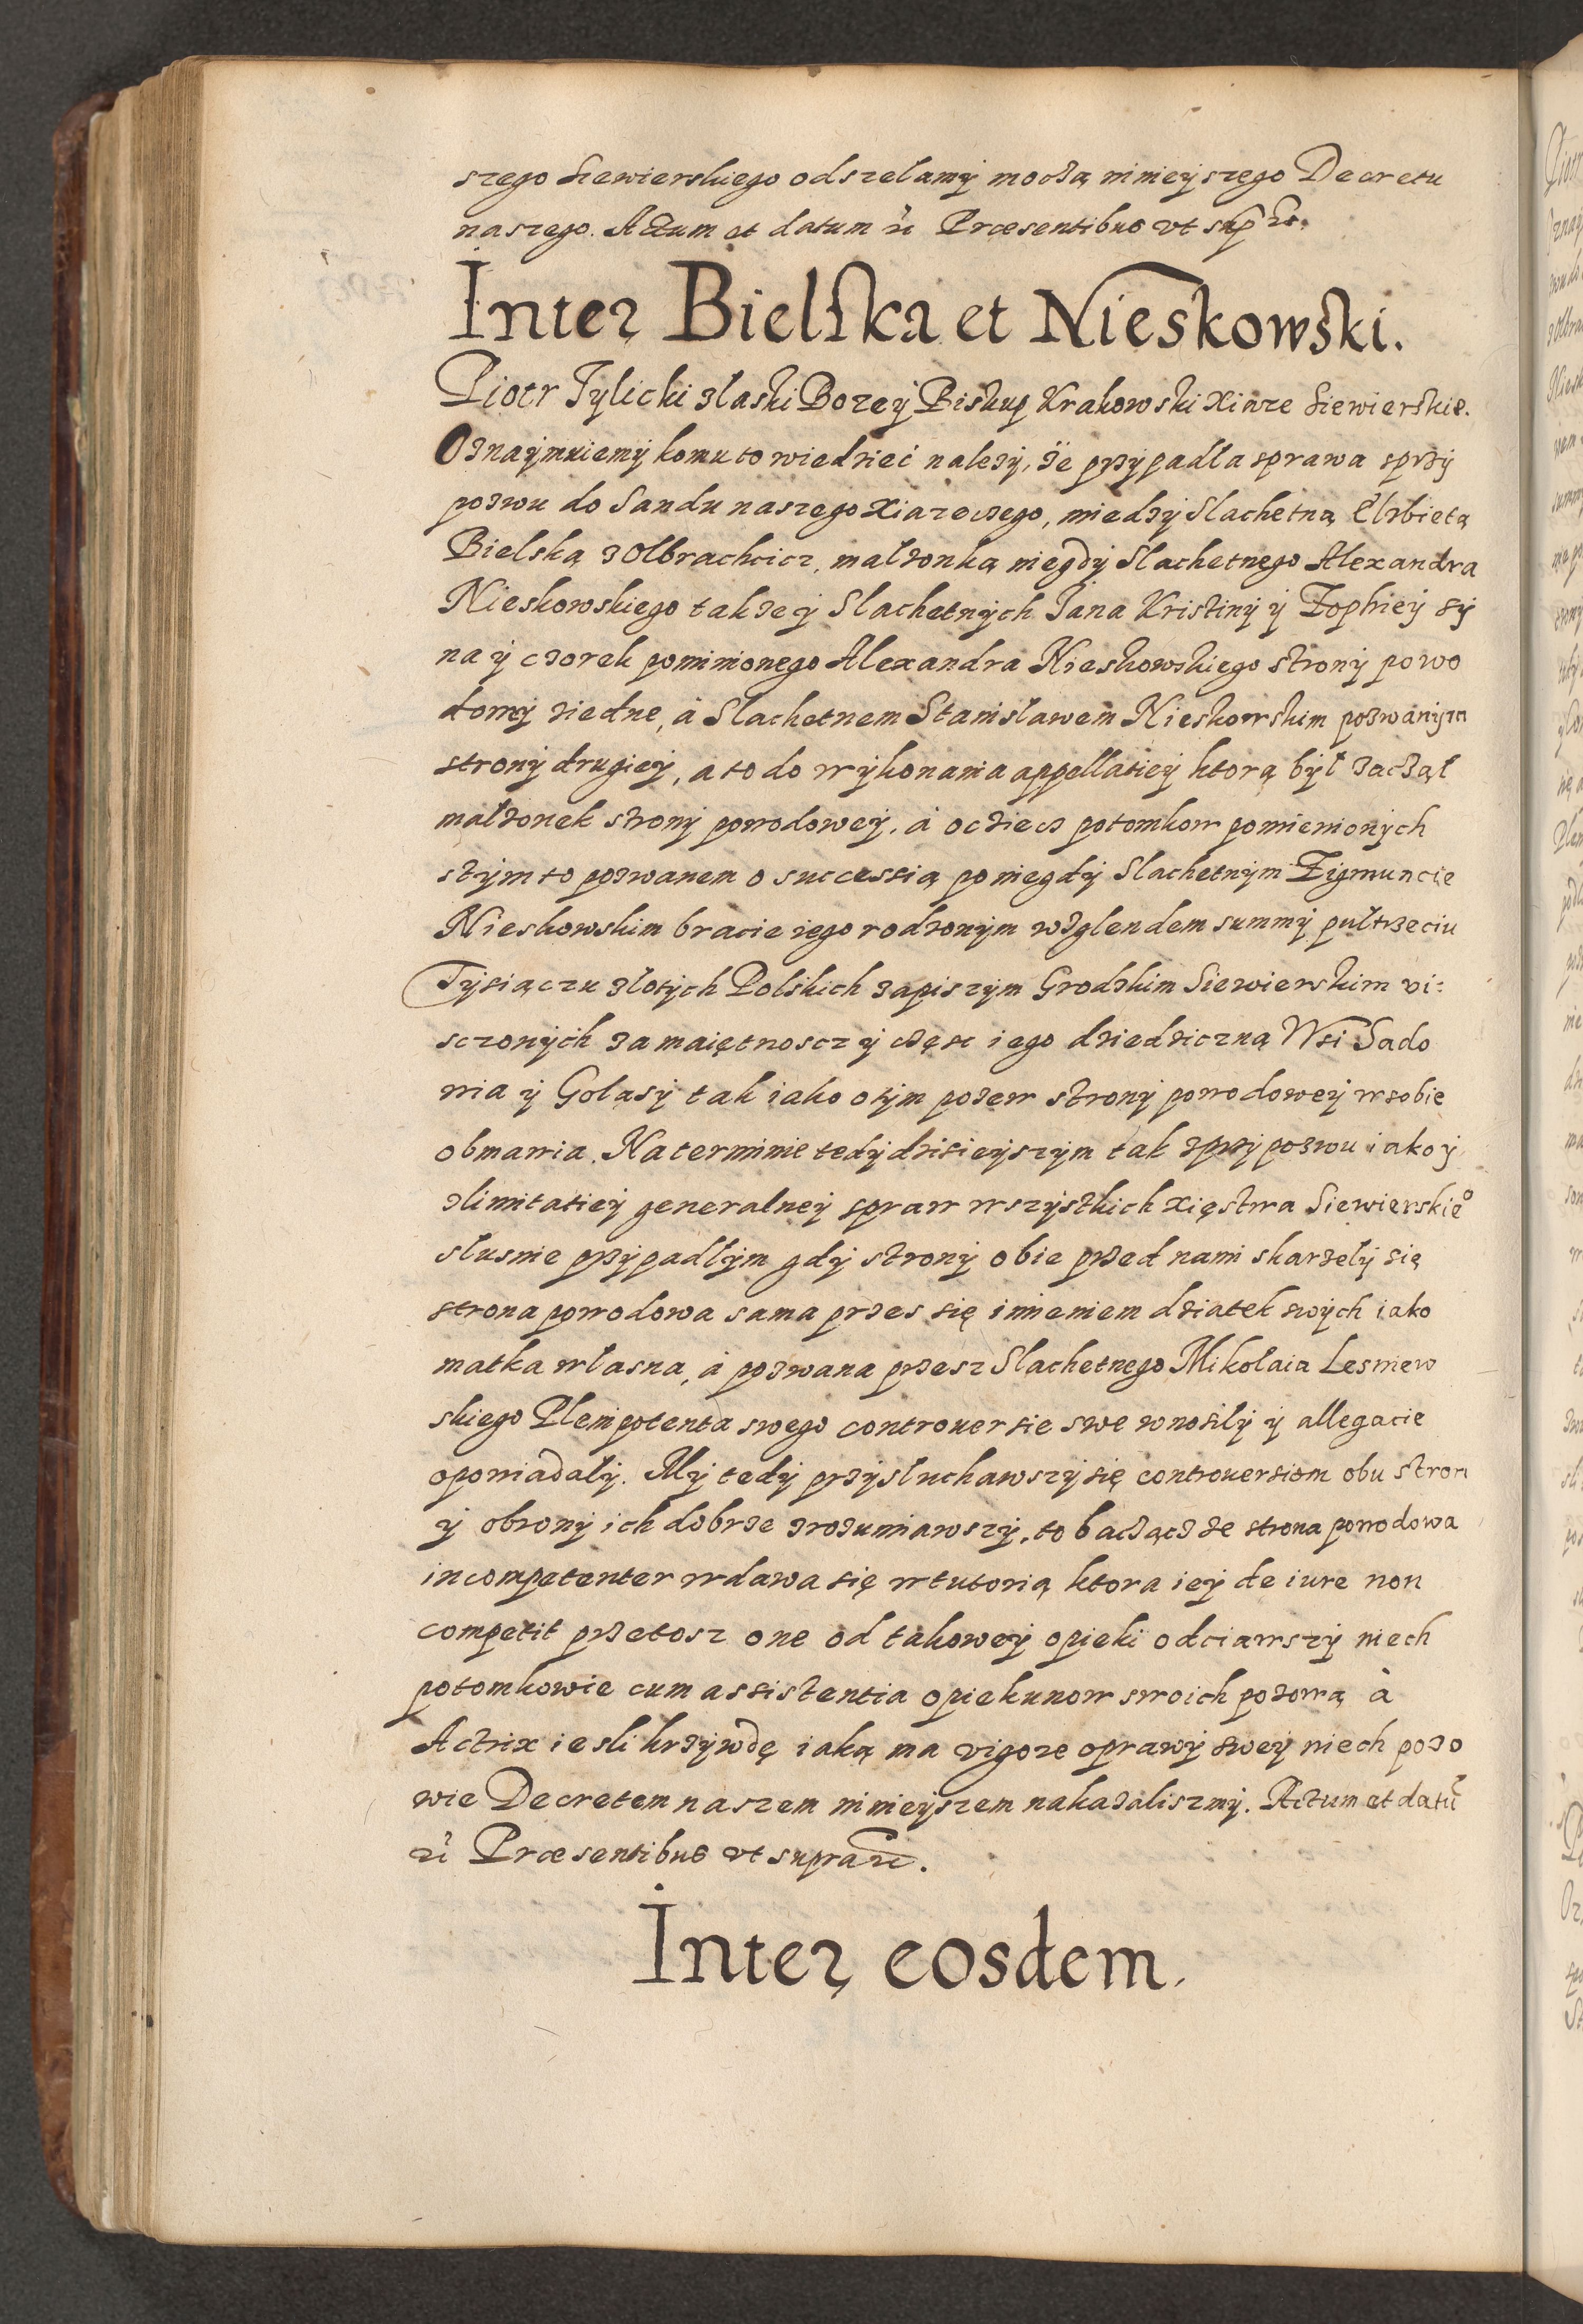 szego Siewierskiego odszelamÿ moczą ninieÿszego Decretu
naszego. Actum et datum ži Præsentibus vt sup etc.
Inter Bielska et Nieskowski.
Piotr Tÿlicki złaski Bozeÿ Biskup Krakowski Xiąze Siewierskie.
Oznaÿmuiemÿ komu to wiedzieć należÿ, że przÿpadła sprawa sprzÿ
pozwu do Sandu naszego Xiazeczego, miedzÿ Slachetną Elzbietą
Bielską z Olbrachcicz, małzonką niegdÿ Slachetnego Alexandra
Nieskowskiego takze ÿ Slachetnÿch Jana Kristinÿ ÿ Zophieÿ sÿ
na ÿ czorek pominionego Alexandra Nieskowskiego stronÿ powo
doweÿ ziedne, à Slachetnem Stanisławem Nieskowskim pozwanÿm
stronÿ drugieÿ, a to do wÿkonania appellatieÿ ktorą bÿł zaczął
małzonek stronÿ powodoweÿ, à ocziecz potomkow pomienionÿch
stÿm to pozwanem o successią po niegdÿ Slachetnÿm Zigmuncie
Nieskowskim bracie iego rodzonÿm wzglendem summÿ pułtrzeciu
Tÿsiączu złotÿch Polskich zapiszÿm Grodzkim Siewierskim vi:
sczonÿch za maiętnoscz ÿ częsc iego dziedziczną Wsi Sado
wia ÿ Golasÿ tak iako o tÿm pozew stronÿ powodoweÿ w sobie
obmawia. Na terminie tedÿ dzisieÿszÿm tak zprzÿ pozwu iako ÿ
zlimitatieÿ generalneÿ spraw wszÿstkich xięstwa Siewierskieo
slusnie przÿpadłÿm gdÿ stronÿ obie przed nami skarzelÿ się
strona powodowa sama przes się imieniem dziatek swÿch iako
matka własna, à pozwana przesz Slachetnego Mikolaia Lesniew
skiego Plenipotenta swego controuersie swe wnosilÿ ÿ allegacie
opowiadalÿ. Mÿ tedÿ przÿsluchawszÿ się controuersiom obu stron
ÿ obronÿ ich dobrze zrozumiawszÿ, to bacząc że strona powodowa
incompetenter wdawa się w tutorią ktora ieÿ de iure non
competit przetosz one od takoweÿ opieki odciąwszÿ niech
potomkowie cum assistentia opiekunow swoich pozową à
Actrix iesli krzÿwdę iaką ma vigore oprawÿ sweÿ niech pozo
wie Decretem naszem ninieÿszem nakazaliszmÿ. Actum et datu
ži Præsentibus vt supra etc.
Inter eosdem.